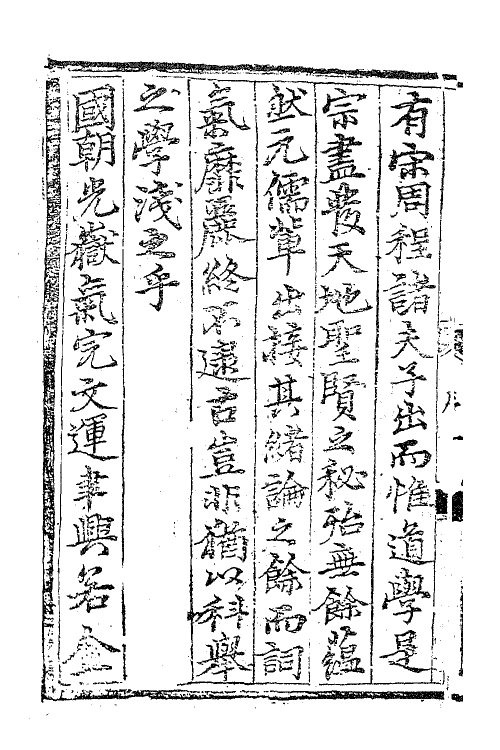 有宋周程諸夫子出而惟道學是
宗盡發天地聖賢之秘殆無餘蘊
猷元儒輩出接其緒論之餘而詞
氣靡麗終不逮古豈非猶以科舉
之學淺之乎
國朝光嶽氣完文運聿興名全
序